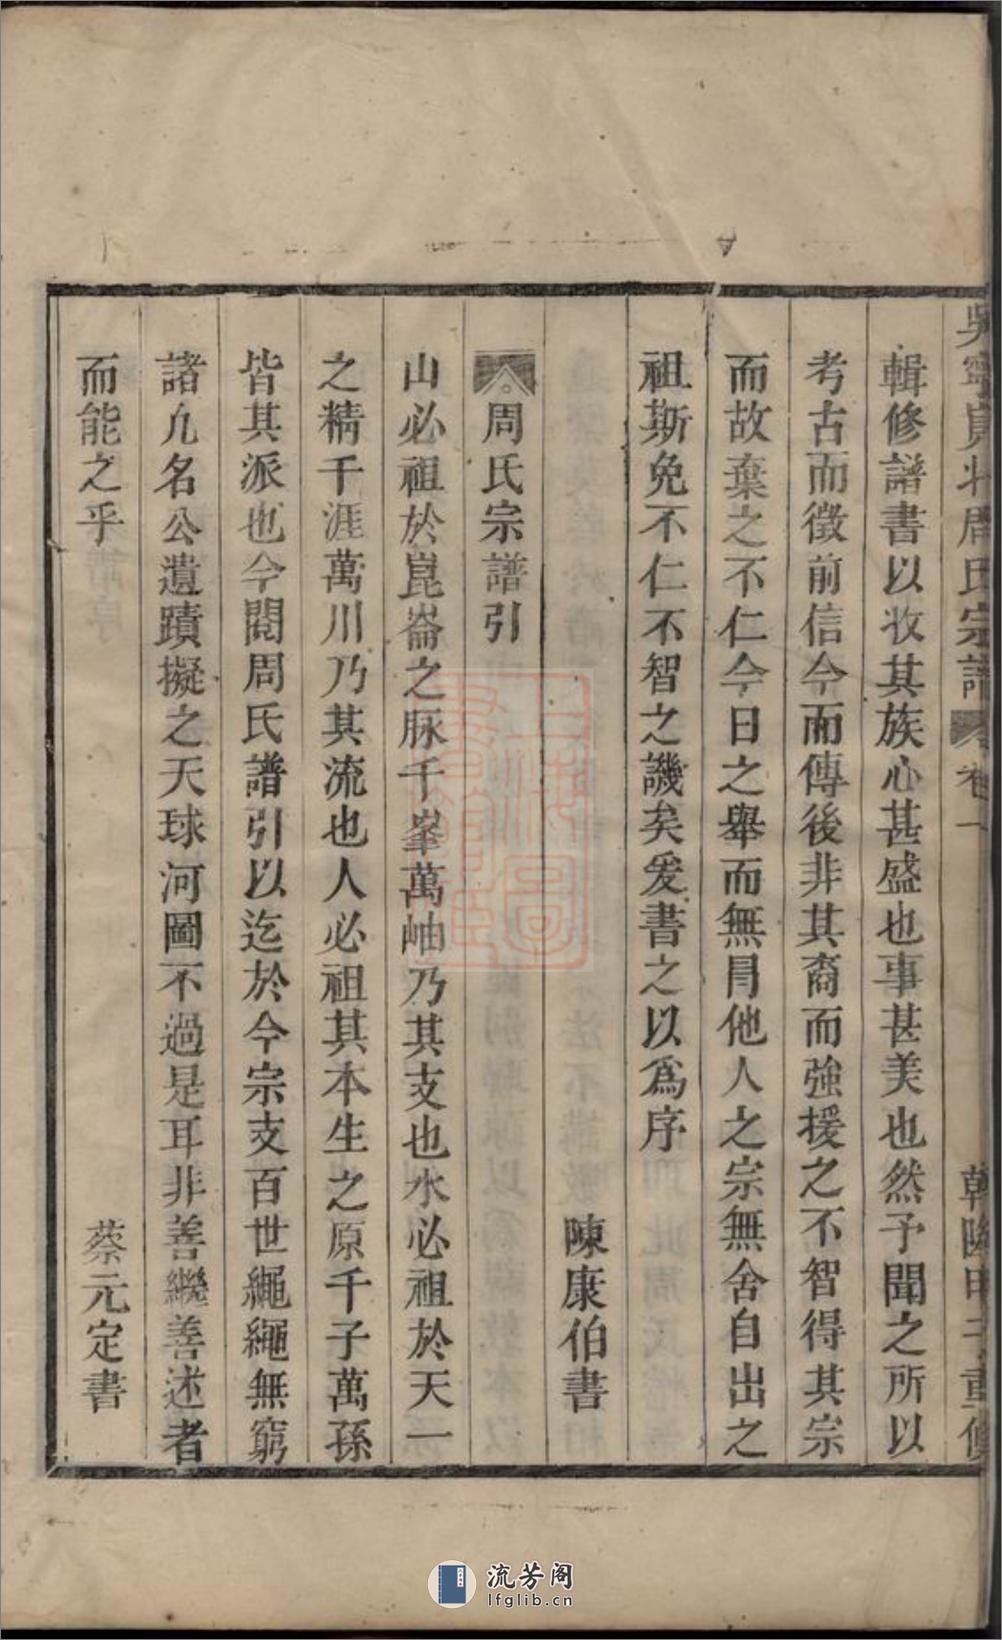 吳寧 周氏宗譜 卷一 重修
輯修譜書以收其族心甚盛也事甚美也然予聞之所以
考古而徵前信今而傳後非其裔而強援之不智得其宗
而故棄之不仁今日之舉而無冐他人之宗無舍自出之
祖斯免不仁不智之譏矣爰書之以為序
陳康伯書
周氏宗譜引
山必祖於崑崙之脈千峯萬岫乃其支也水必祖於天一
之精千涯萬川乃其流也人必祖其本生之原千子萬孫
皆其派也今閱周氏譜引以迄於今宗支百世繩繩無窮
諸九名公遺蹟擬之天球河圖不過是耳非善繼善述者
而能之乎
蔡元定書
流芳阁
lfglib.cn